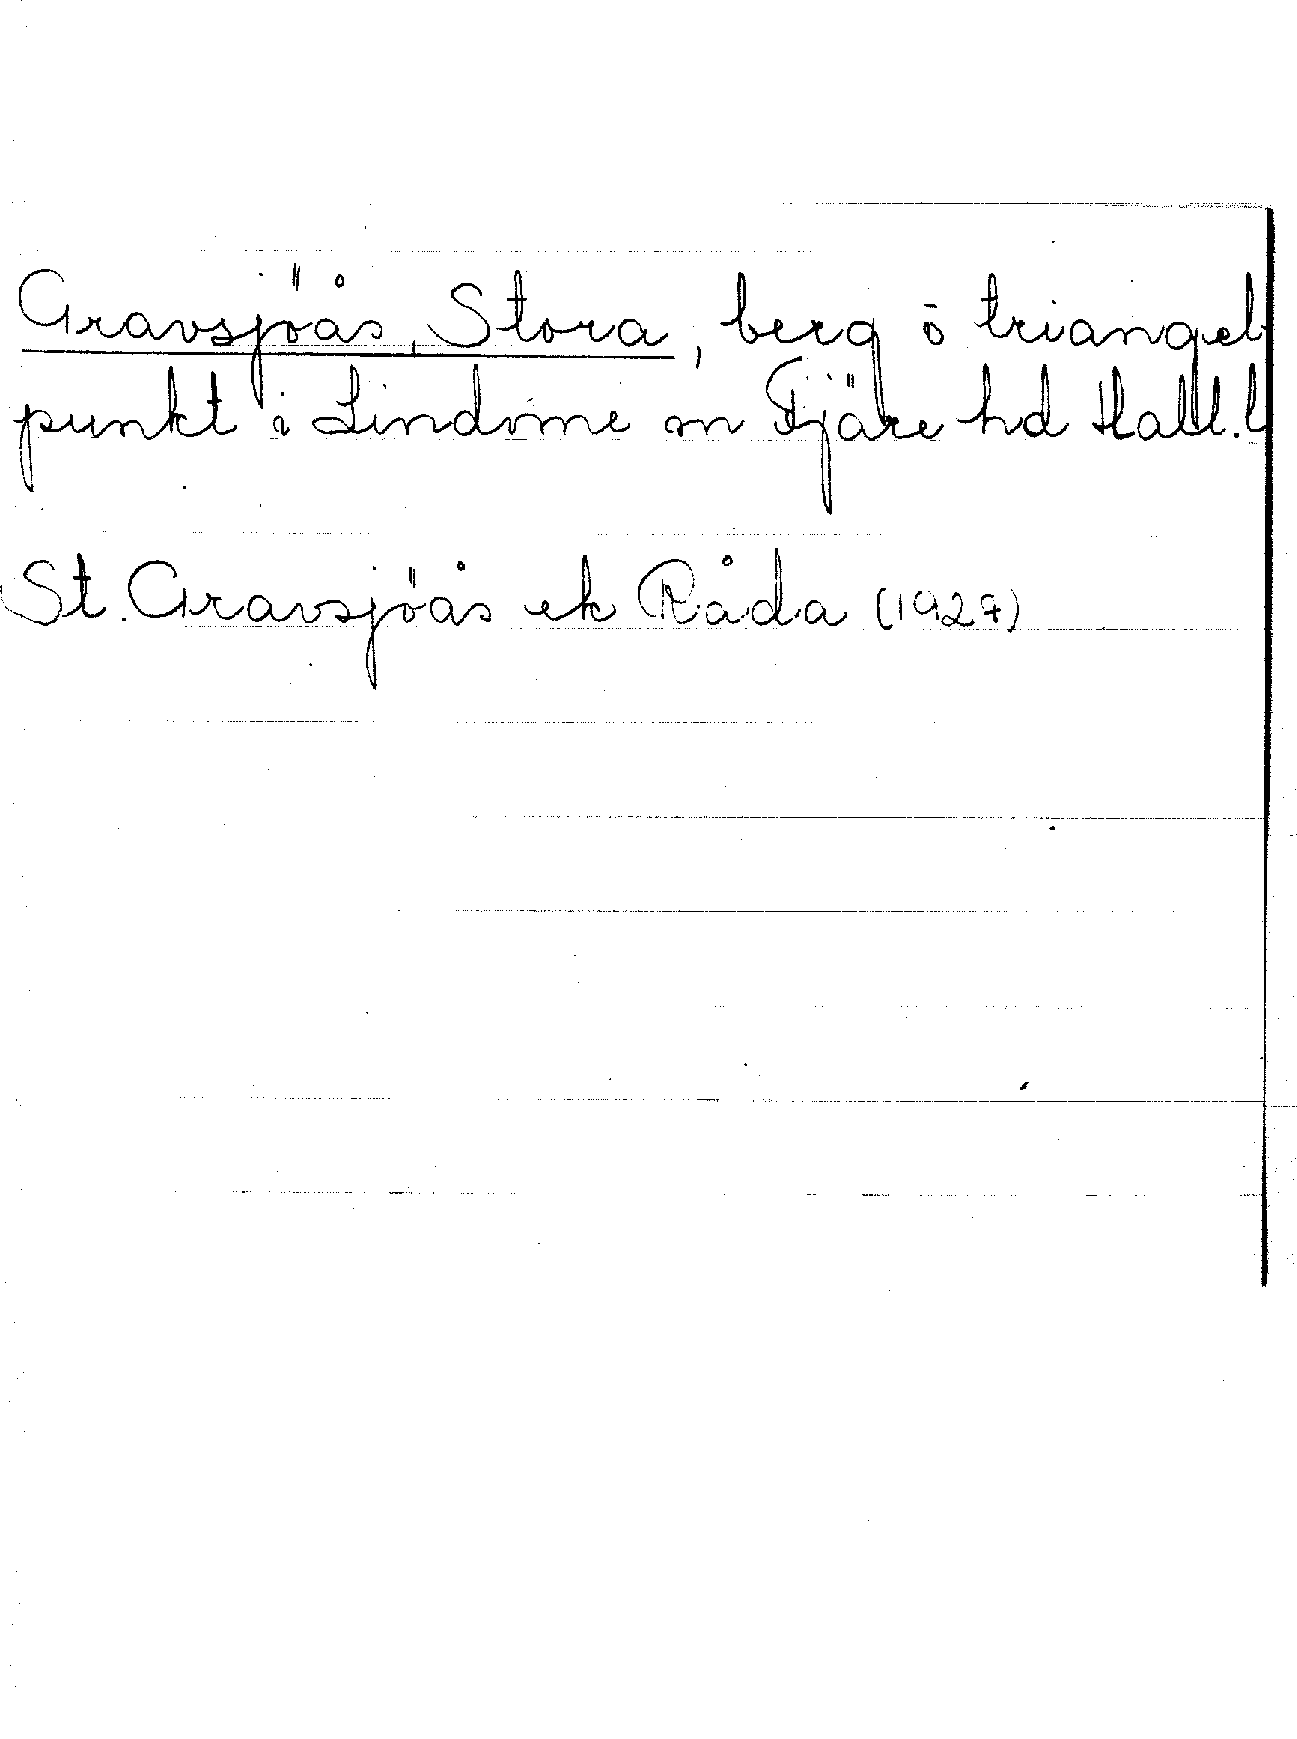 Gravsjöås, Stora, berg o triangel
punkt i Lindome sn Fjäre hd Hall. l
St. Gravsjöås ek Råda (1927)